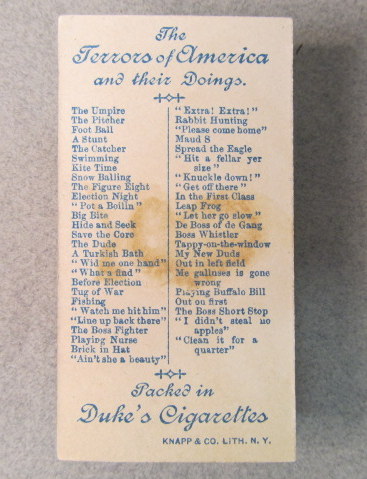 The
Terrors of America
and their Doings.
The Umpire
The Pitcher
Foot Ball
A Stunt
The Catcher
Swimming
Kite Time
Snow Balling
The Figure Eight
Election Night
"Pot a Boilin"
Big Bite
Hide and Seek
Save the Core
The Dude
A Turkish Bath
"Wid me one hand"
"What a find"
Before Election
Tug of War
Fishing
"Watch me hit him"
"Line up back there"
The Boss Fighter
Playing Nurse
Brick in Hat
"Ain't she a beauty"
"Extra! Extra!"
Rabbit Hunting
"Please come home"
Maud S
Spread the Eagle
"Hit a fellar yer
size"
"Knuckle down!"
"Get off there"
In the First Class
Leap Frog
"Let her go slow"
De Boss of de Gang
Boss Whistler
Tappy-on-the-window
My New Duds
Out in left field
Me galluses is gone
wrong
Playing Buffalo Bill
Out on first
The Boss Short Stop
"I didn't steal no
apples"
"Clean it for a
quarter"
Packed in
Duke's Cigarettes
KNAPP & CO. LITH. N. Y.